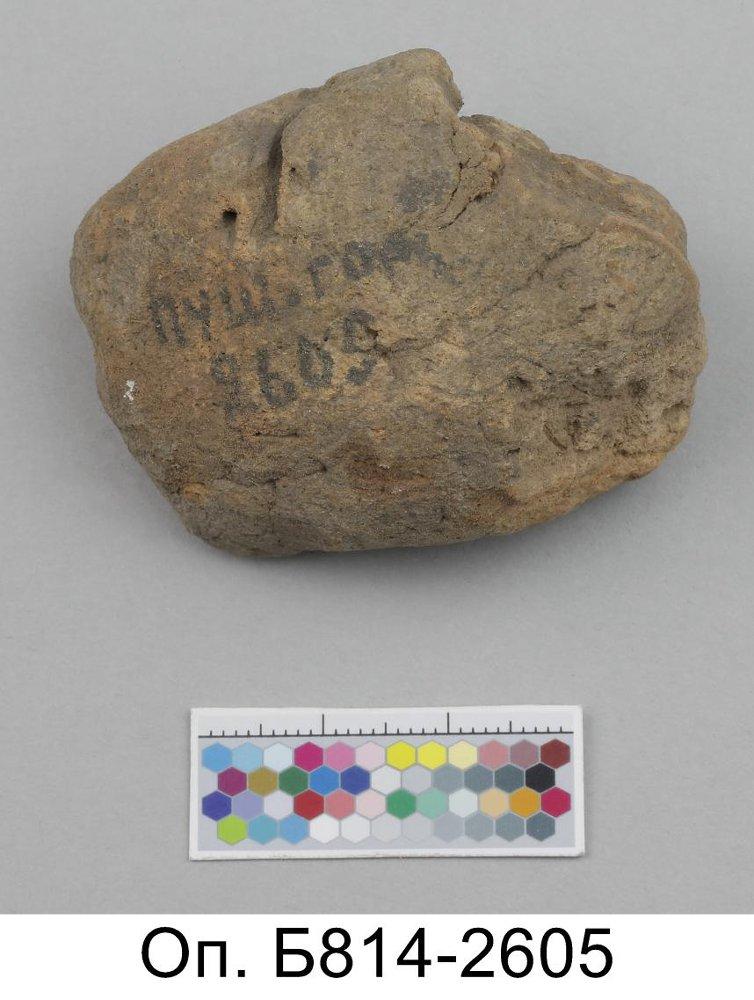 ПУШ. гор.
2609
Оп. Б814-2605